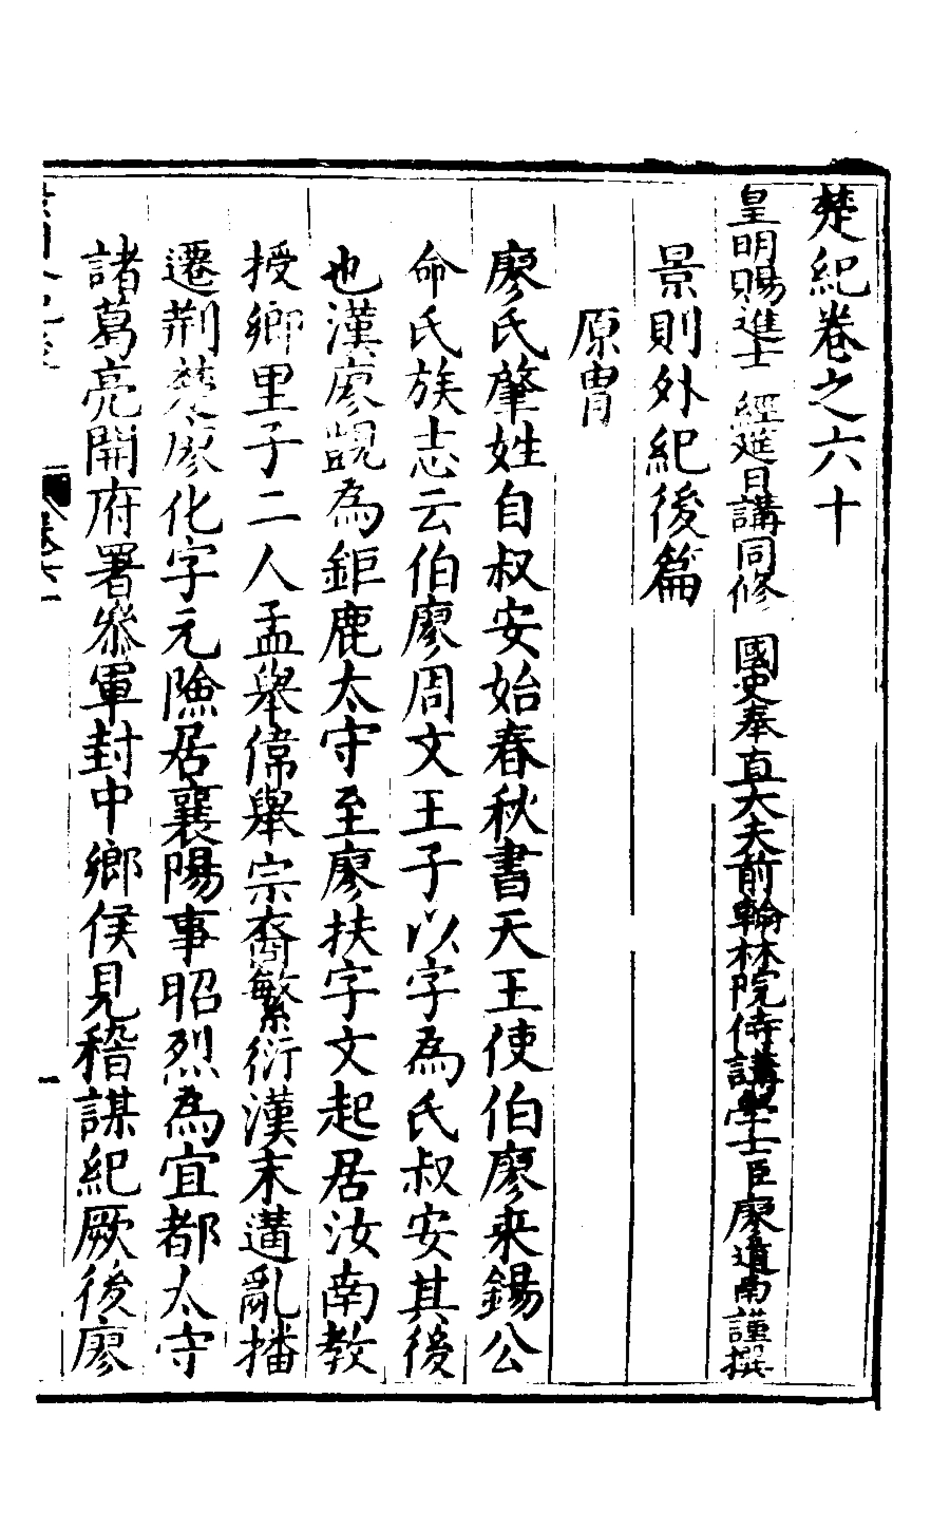 楚紀卷之六十
皇明賜進士 經筵日講同修 國史奉直大夫前翰林院侍講學士臣廖道南謹撰
景則外紀後篇
原胄
廖氏肇姓自叔安始春秋書天王使伯廖来錫公
命氏族志云伯廖周文王子以字為氏叔安其後
也漢廖覬為鉅鹿太守至廖扶字文起居汝南教
授鄉里子二人孟舉偉舉宗裔繁衍漢末遘亂播
遷荆楚廖化字元險居襄陽事昭烈為宜都太守
諸葛亮開府署叅軍封中鄉侯見稽謀紀厥後廖